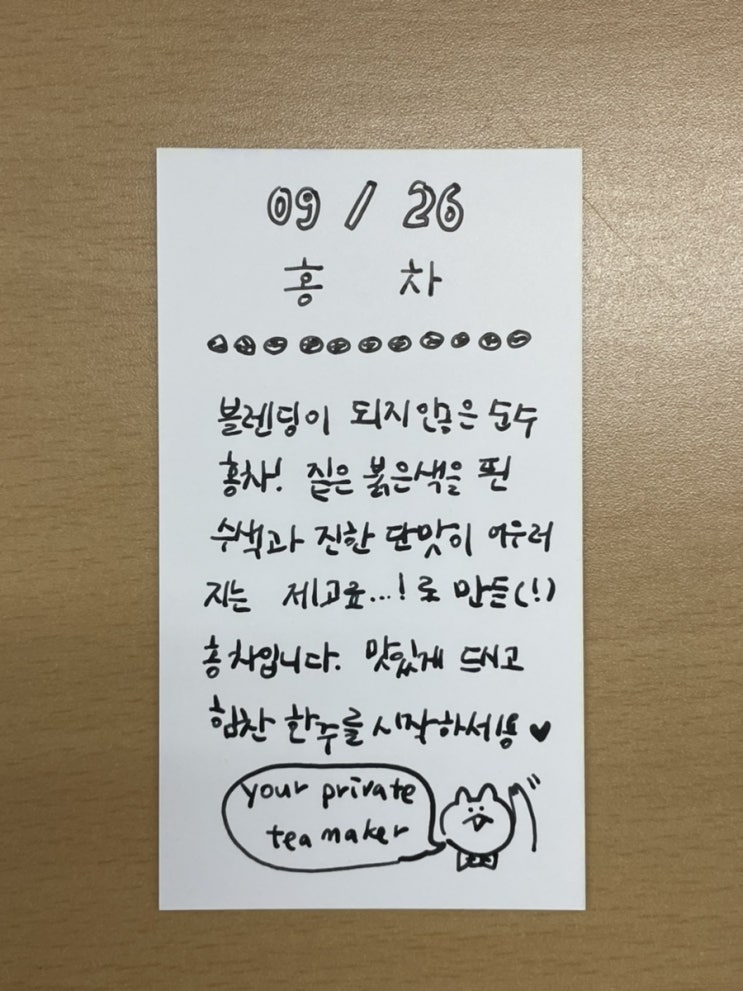 09 / 26
홍 차
블렌딩이 되지않은 순수
홍차! 짙은 붉은색을 띈
수색과 진한 단맛이 어우러
지는 제1교료...!로 만들(!)
홍차입니다. 맛있게 드시고
힘찬 한주를 시작하세용 ♥
your private
tea maker